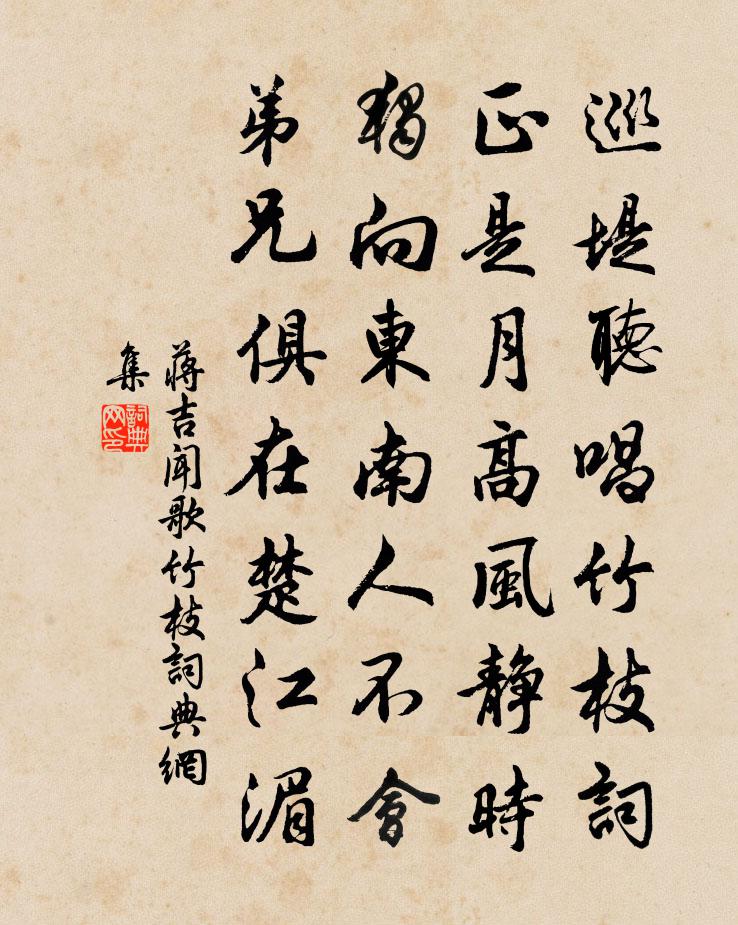 巡堤聽唱竹枝詞
正是月高風静時
獨向東南人不會
弟兄俱在楚江湄
蔣吉聞歌竹枝詞典網
集
詞典
网印